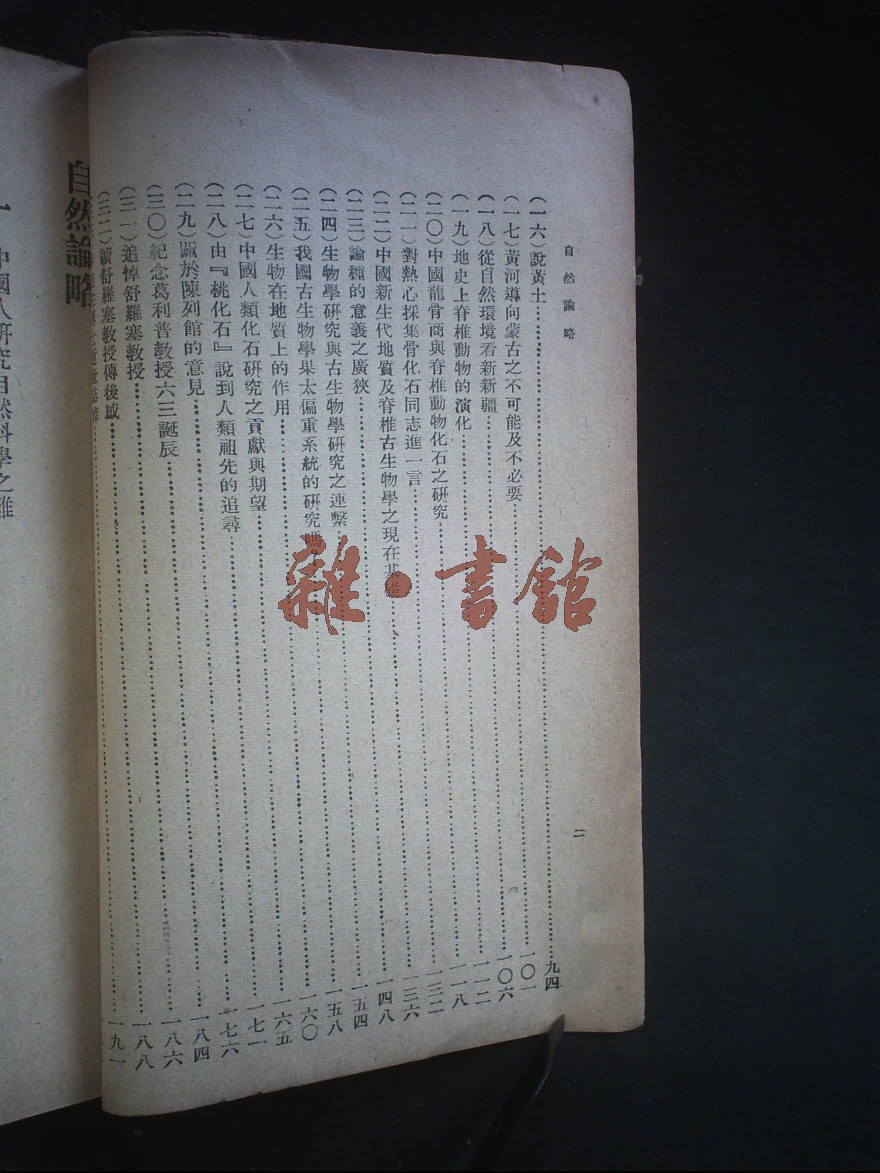 自然論略
（一六）說黃土……九四
（一七）黃河導向蒙古之不可能及不必要……一〇一
（一八）從自然環境看新新疆……一〇六
（一九）地史上脊椎動物的演化……一一二
（二〇）中國龍骨商與脊椎動物化石之研究……一一八
（二一）對熱心採集骨化石同志進一言……一三二
（二二）中國新生代地質及脊椎古生物學之現在……一三六
（二三）論種的意義之廣狹……一四八
（二四）生物學研究與古生物學研究之連繫……一五四
（二五）我國古生物學果太偏重系統的研究嗎……一五八
（二六）生物在地質上的作用……一六〇
（二七）中國人類化石研究之貢獻與期望……一六五
（二八）由『桃化石』說到人類祖先的追尋……一七一
（二九）關於陳列館的意見……一七六
（三〇）紀念葛利普教授六三誕辰……一八四
（三一）追悼舒羅塞教授……一八六
（三二）讀舒羅塞教授傳後感……一八八
一九一
二
自然論略
一 中國人研究自然科學之
雜·書館